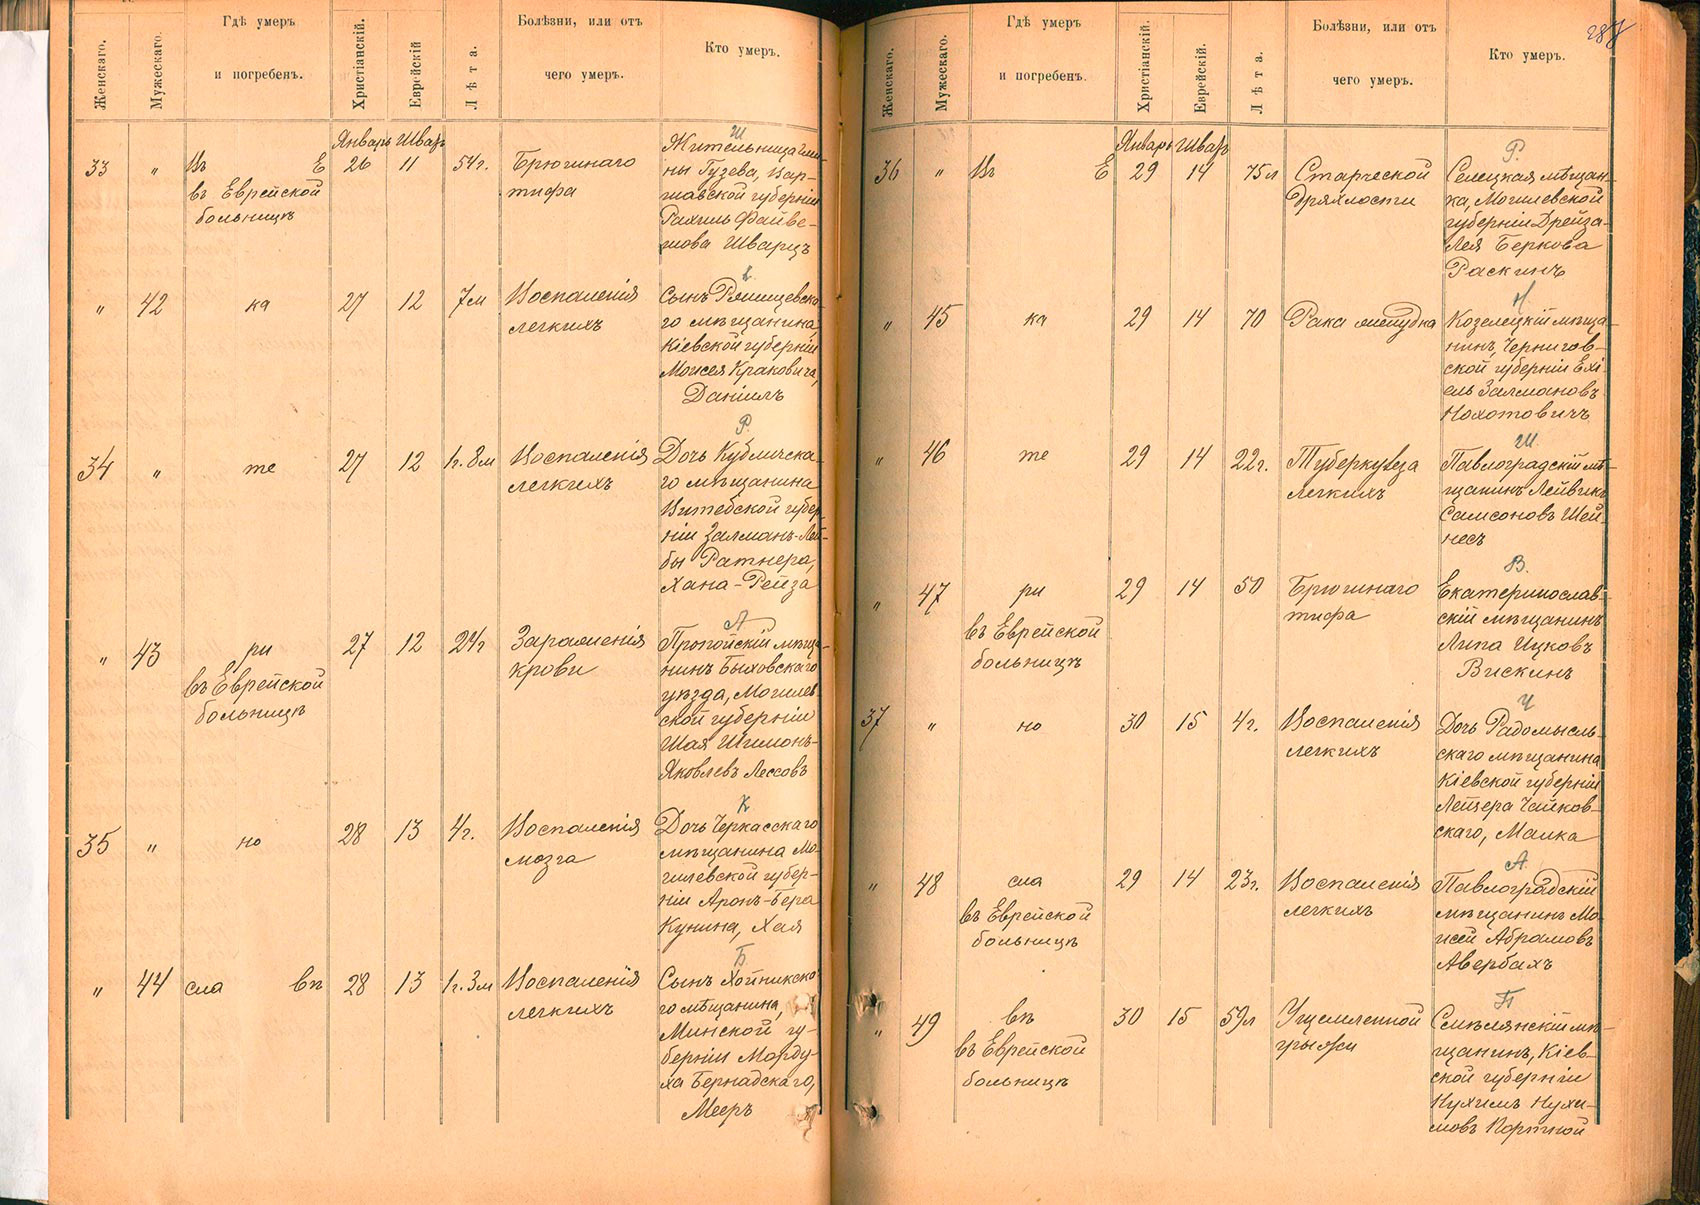 Женскаго.
Мужескаго.
Гдѣ умеръ
и погребенъ.
Христіанскій.
Еврейскій
Лѣта.
Болѣзни, или отъ
чего умеръ.
Кто умеръ.
Январь Шватъ
33 " Въ Е 26 11 54 г. Брюшнаго
въ Еврейской тифа
больницѣ
Ш
Жительница гми-
ны Гузева, Вар-
шавской губерніи
Рахиль Файве-
шова Шварцъ
" 42 ка 27 12 7 м Воспаленія
легкихъ
Сынъ Ржищевска-
го мѣщанина,
Кіевской губерніи
Моисея Краковича,
Даніилъ
34 " те 27 12 1 г. 8 м Воспаленія
легкихъ
Р.
Дочь Кубличска-
го мѣщанина
Витебской губер-
ніи Залманъ-Лей-
бы Ратнера,
Хана-Рейза
" 43 ри 27 12 24 г Зараженія
въ Еврейской крови
больницѣ
А
Пропойскій мѣща-
нинъ Быховскаго
уѣзда, Могилев
ской губерніи
Шая Шимонъ-
Яковлевъ Лессовъ
35 " но 28 13 4 г. Воспаленія
мозга
К
Дочь Черкасскаго
мѣщанина Мо-
гилевской губер-
ніи Аронъ-Бера
Кунина, Хая
" 44 сла вѣ 28 13 1 г. 3 м Воспаленія
легкихъ
Б.
Сынъ Хойникска-
го мѣщанина,
Минской гу-
берніи Морду-
ха Бернадскаго,
Мееръ
Женскаго.
Мужескаго.
Гдѣ умеръ
и погребенъ.
Христіанскій.
Еврейскій.
Лѣта.
Болѣзни, или отъ
чего умеръ.
Кто умеръ.
Январь Шватъ
36 " Въ Е 29 14 75 л Старческой
дряхлости
Р.
Селецкая мѣщан-
ка, Могилевской
губерніи Дрейза-
Лея Беркова
Раскинъ
" 45 ка 29 14 70 Рака желудка
Н
Козелецкій мѣща-
нинъ, Чернигов-
ской губерніи Ехі-
ель Залмановъ
Нохотовичъ
" 46 те 29 14 22 г. Туберкулеза
легкихъ
Ш.
Павлоградскій мѣ-
щанинъ Лейвикъ
Самсоновъ Шей-
несъ
" 47 ри 29 14 50 Брюшнаго
въ Еврейской тифа
больницѣ
В.
Екатеринослав-
скій мѣщанинъ
Липа Ицковъ
Вискинъ
37 " но 30 15 4 г. Воспаленія
легкихъ
Ч
Дочь Радомысль-
скаго мѣщанина
Кіевской губерніи
Лейзера Чайков-
скаго, Малка
" 48 сла 29 14 23 г. Воспаленія
въ Еврейской легкихъ
больницѣ
А.
Павлоградскій
мѣщанинъ Мо-
исей Абрамовъ
Авербахъ
" 49 вѣ 30 15 59 л Ущемленной
въ Еврейской грыжи
больницѣ
П
Смѣлянскій мѣ-
щанинъ, Кіев-
ской губерніи
Нухимъ Нухи-
мовъ Портной